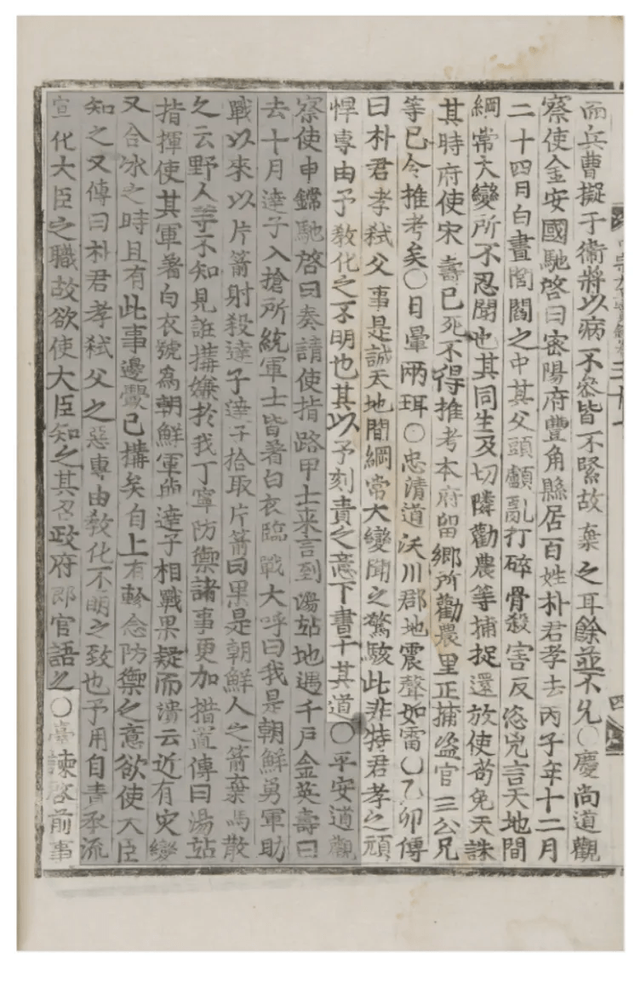 而兵曹擬于衛將以病不容皆不緊故棄之耳餘並不允○慶尚道觀
察使金安國馳啓曰密陽府豐角縣居百姓朴君孝去丙子年十二月
二十四月白晝閭閻之中其父頭顱亂打碎骨殺害反恣兇言天地間
綱常大變所不忍聞也其同生及切隣勸農等捕捉還放使苟免天誅
其時府使宋壽已死不得推考本府留鄉所勸農里正捕盜官三公兄
等已令推考矣○日暈兩珥○忠清道沃川郡地震聲如雷○乙卯傳
曰朴君孝弑父事是誠天地間綱常大變聞之驚駭此非特君孝之頑
悍專由予敎化之不明也其以予刻責之意下書于其道○平安道觀
察使申鏛馳啓曰奏請使指路甲士来言到湯站地遇千戶金英壽曰
去十月達子入搶所統軍士皆著白衣臨戰大呼曰我是朝鮮勇軍助
戰以來以片箭射殺達子達子拾取片箭曰果是朝鮮人之箭棄馬散
之云野人等不知見誑搆嫌於我丁寧防禦諸事更加措置傳曰湯站
指揮使其軍著白衣號爲朝鮮軍而達子相戰果疑而潰云近有灾變
又合冰之時且有此事邊釁已搆矣自上有軫念防禦之意欲使大臣
知之又傳曰朴君孝弑父之惡專由敎化不明之致也予用自責承流
宣化大臣之職故欲使大臣知之其召政府郎官語之○臺諫啓前事